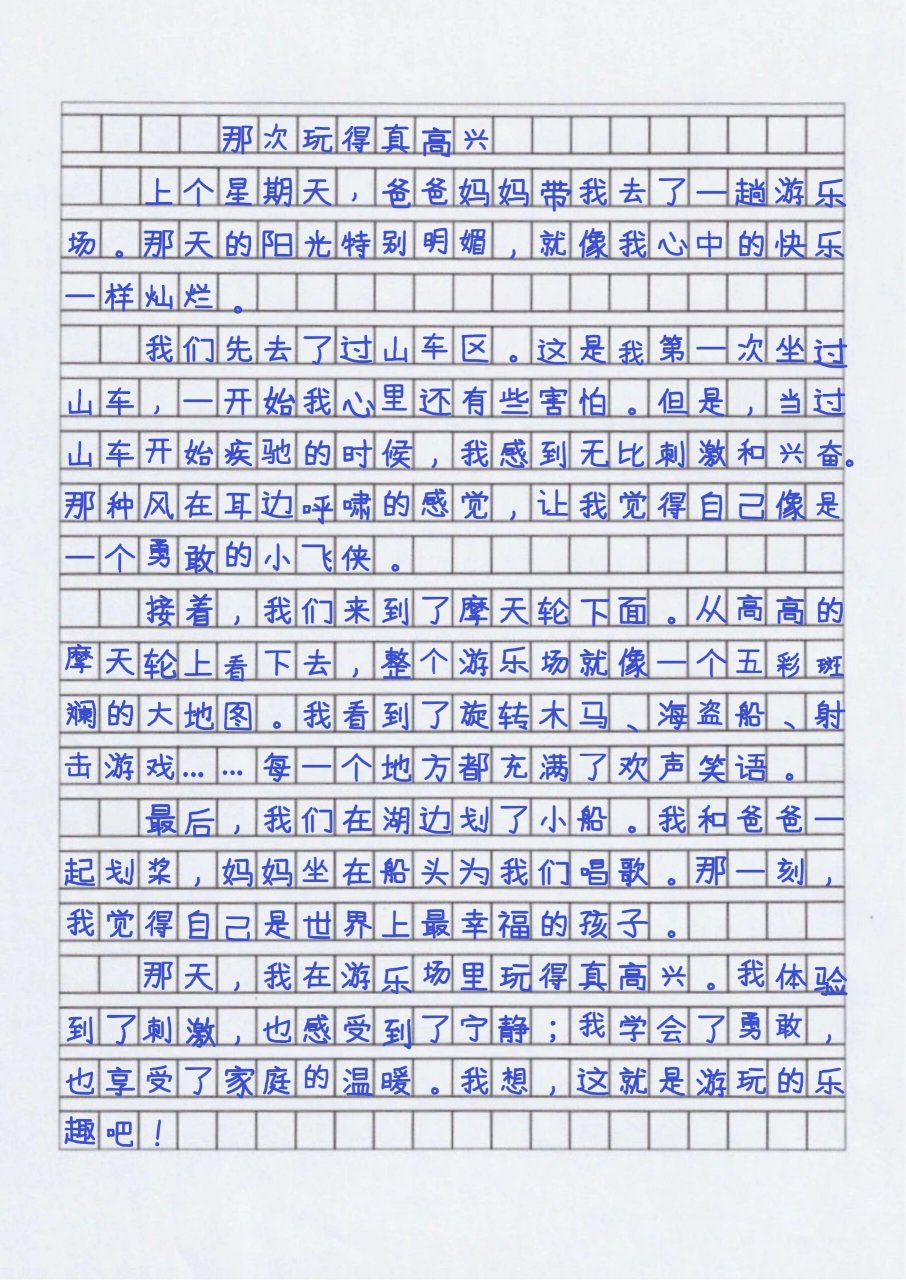 那次玩得真高兴
上个星期天，爸爸妈妈带我去了一趟游乐
场。那天的阳光特别明媚，就像我心中的快乐
一样灿烂。
我们先去了过山车区。这是我第一次坐过
山车，一开始我心里还有些害怕。但是，当过
山车开始疾驰的时候，我感到无比刺激和兴奋。
那种风在耳边呼啸的感觉，让我觉得自己像是
一个勇敢的小飞侠。
接着，我们来到了摩天轮下面。从高高的
摩天轮上看下去，整个游乐场就像一个五彩斑
斓的大地图。我看到了旋转木马、海盗船、射
击游戏……每一个地方都充满了欢声笑语。
最后，我们在湖边划了小船。我和爸爸一
起划桨，妈妈坐在船头为我们唱歌。那一刻，
我觉得自己是世界上最幸福的孩子。
那天，我在游乐场里玩得真高兴。我体验
到了刺激，也感受到了宁静；我学会了勇敢，
也享受了家庭的温暖。我想，这就是游玩的乐
趣吧！